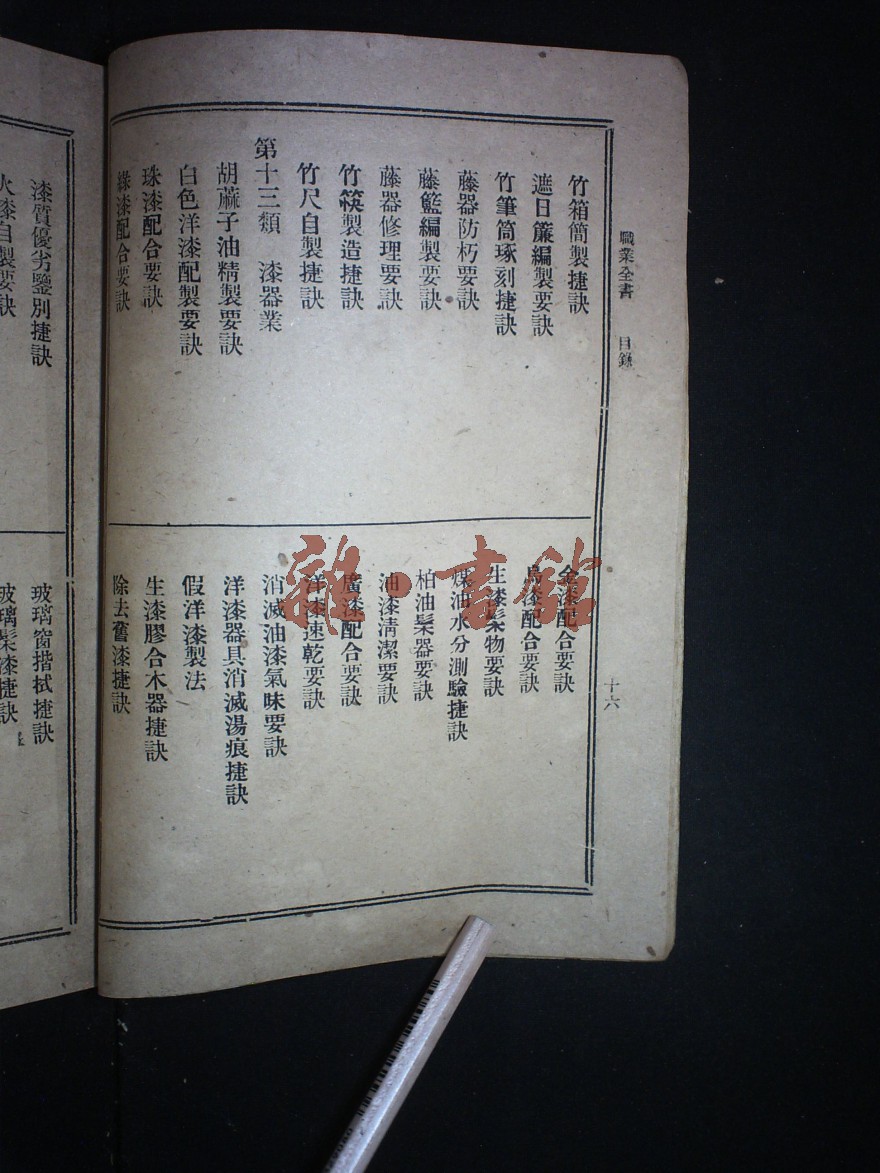 職業全書 目錄
十六
竹箱筒製捷訣
遮日簾編製要訣
竹筆筒琢刻捷訣
藤器防朽要訣
藤籃編製要訣
藤器修理要訣
竹筷製造捷訣
竹尺自製捷訣
第十三類 漆器業
胡蔴子油精製要訣
白色洋漆配製要訣
珠漆配合要訣
綠漆配合要訣
金漆配合要訣
烏漆配合要訣
生漆髹物要訣
煤油水分測驗捷訣
柏油髹器要訣
油漆清潔要訣
廣漆配合要訣
洋漆速乾要訣
消滅油漆氣味要訣
洋漆器具消滅湯痕捷訣
假洋漆製法
生漆膠合木器捷訣
除去舊漆捷訣
漆質優劣鑒別捷訣
火漆自製要訣
玻璃窗揩拭捷訣
玻璃髹漆捷訣
雜·書館